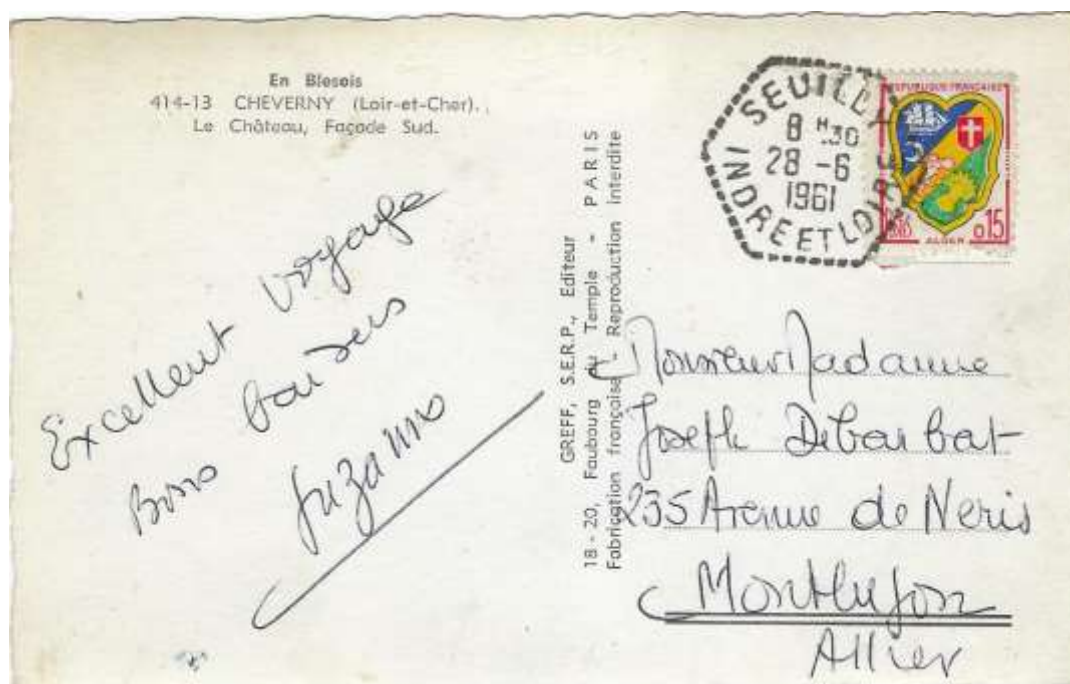 En Blesois
414-13 CHEVERNY (Loir-et-Cher).
Le Château, Façade Sud.
Excellent voyage
Bons baisers
Suzanne
GREFF, S.E.R.P., Editeur
18 - 20, Faubourg du Temple - PARIS
Fabrication française - Reproduction interdite
SEUILLY
8 H 30
28 - 6
1961
INDRE ET LOIRE
REPUBLIQUE FRANÇAISE
POSTES
0,15
ALGER
Monsieur Madame
Joseph Debarbat
235 Avenue de Neris
Montluçon
Allier